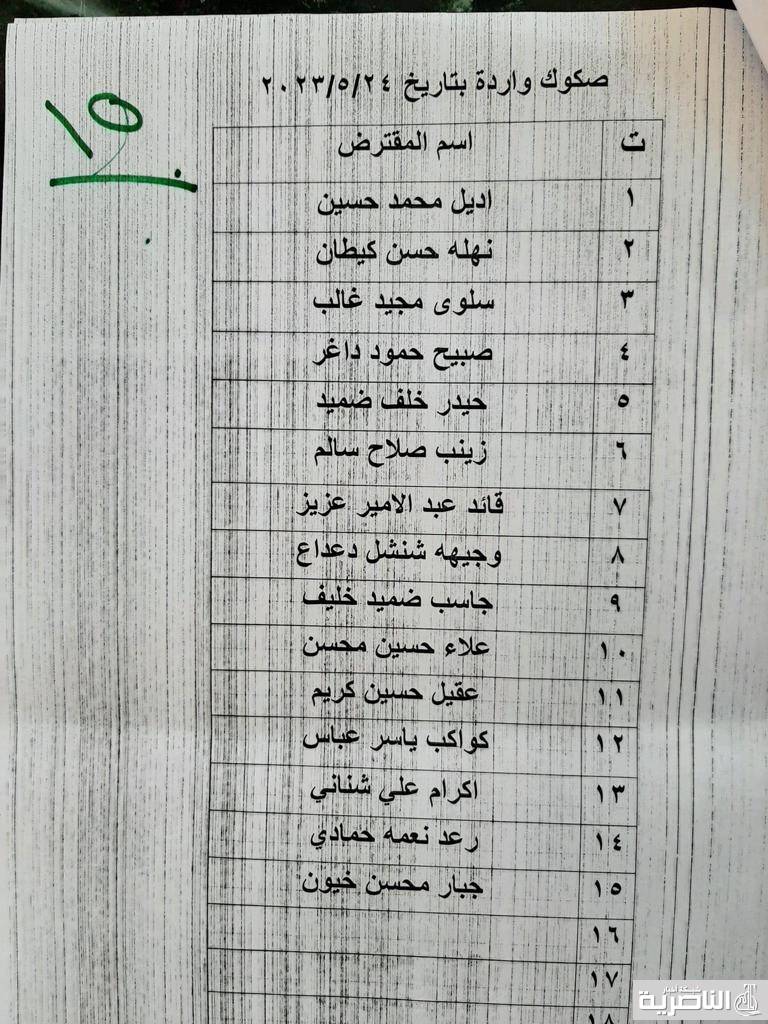 صكوك واردة بتاريخ ٢٠٢٣/٥/٢٤
١٥
ت اسم المقترض
١ اديل محمد حسين
٢ نهله حسن كيطان
٣ سلوى مجيد غالب
٤ صبيح حمود داغر
٥ حيدر خلف ضميد
٦ زينب صلاح سالم
٧ قائد عبد الامير عزيز
٨ وجيهه شنشل دعداع
٩ جاسب ضميد خليف
١٠ علاء حسين محسن
١١ عقيل حسين كريم
١٢ كواكب ياسر عباس
١٣ اكرام علي شناني
١٤ رعد نعمه حمادي
١٥ جبار محسن خيون
١٦
١٧
١٨
شبكة اخبار
الناصرية